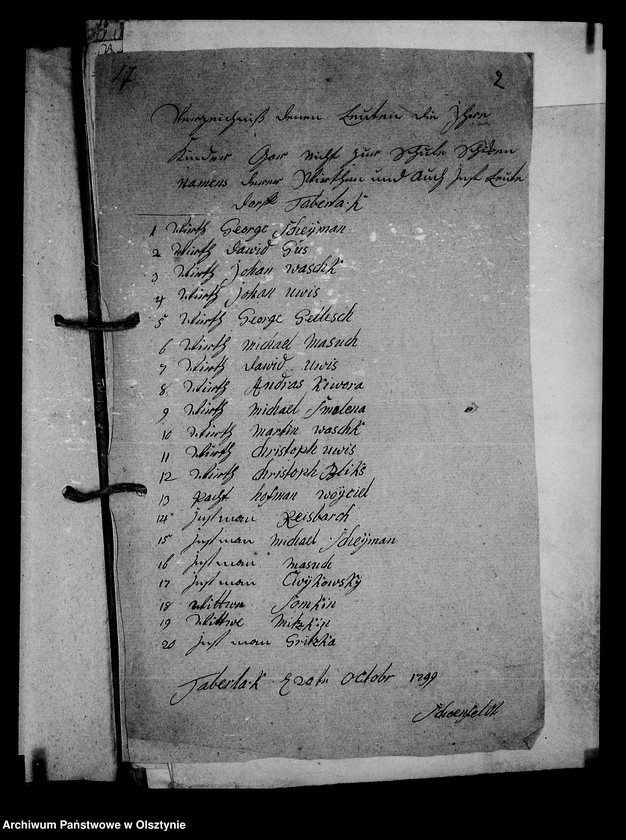 17 2
Verzeichniß denen Leuten die Ihre
Kinder Gar nicht zur Schule Schiken
Namens derer Wirthen und Auch Inst Leute
Dorff Taberlak
1 Wirth George Scheÿman
2 Wirth Dawid Gus
3 Wirth Johan Waschk
4 Wirth Johan Uwis
5 Wirth George Gettesch
6 Wirth Michael Masuch
7 Wirth Dawid Uwis
8 Wirth Andras Kiwora
9 Wirth Michael Smolena
10 Wirth Martin Waschk
11 Wirth Christoph Uwis
12 Wirth Christoph Bliks
13 Pacht Hofman Woÿciel
14 Instman Reisbarch
15 Instman Michael Scheÿman
16 Instman Masuch
17 Instman Cwÿkowskÿ
18 Wittwe Somkin
19 Wittwe Mitzkin
20 Instman Gritzka
Taberlak Octobr 1799
Schoenfeldt
Archiwum Państwowe w Olsztynie